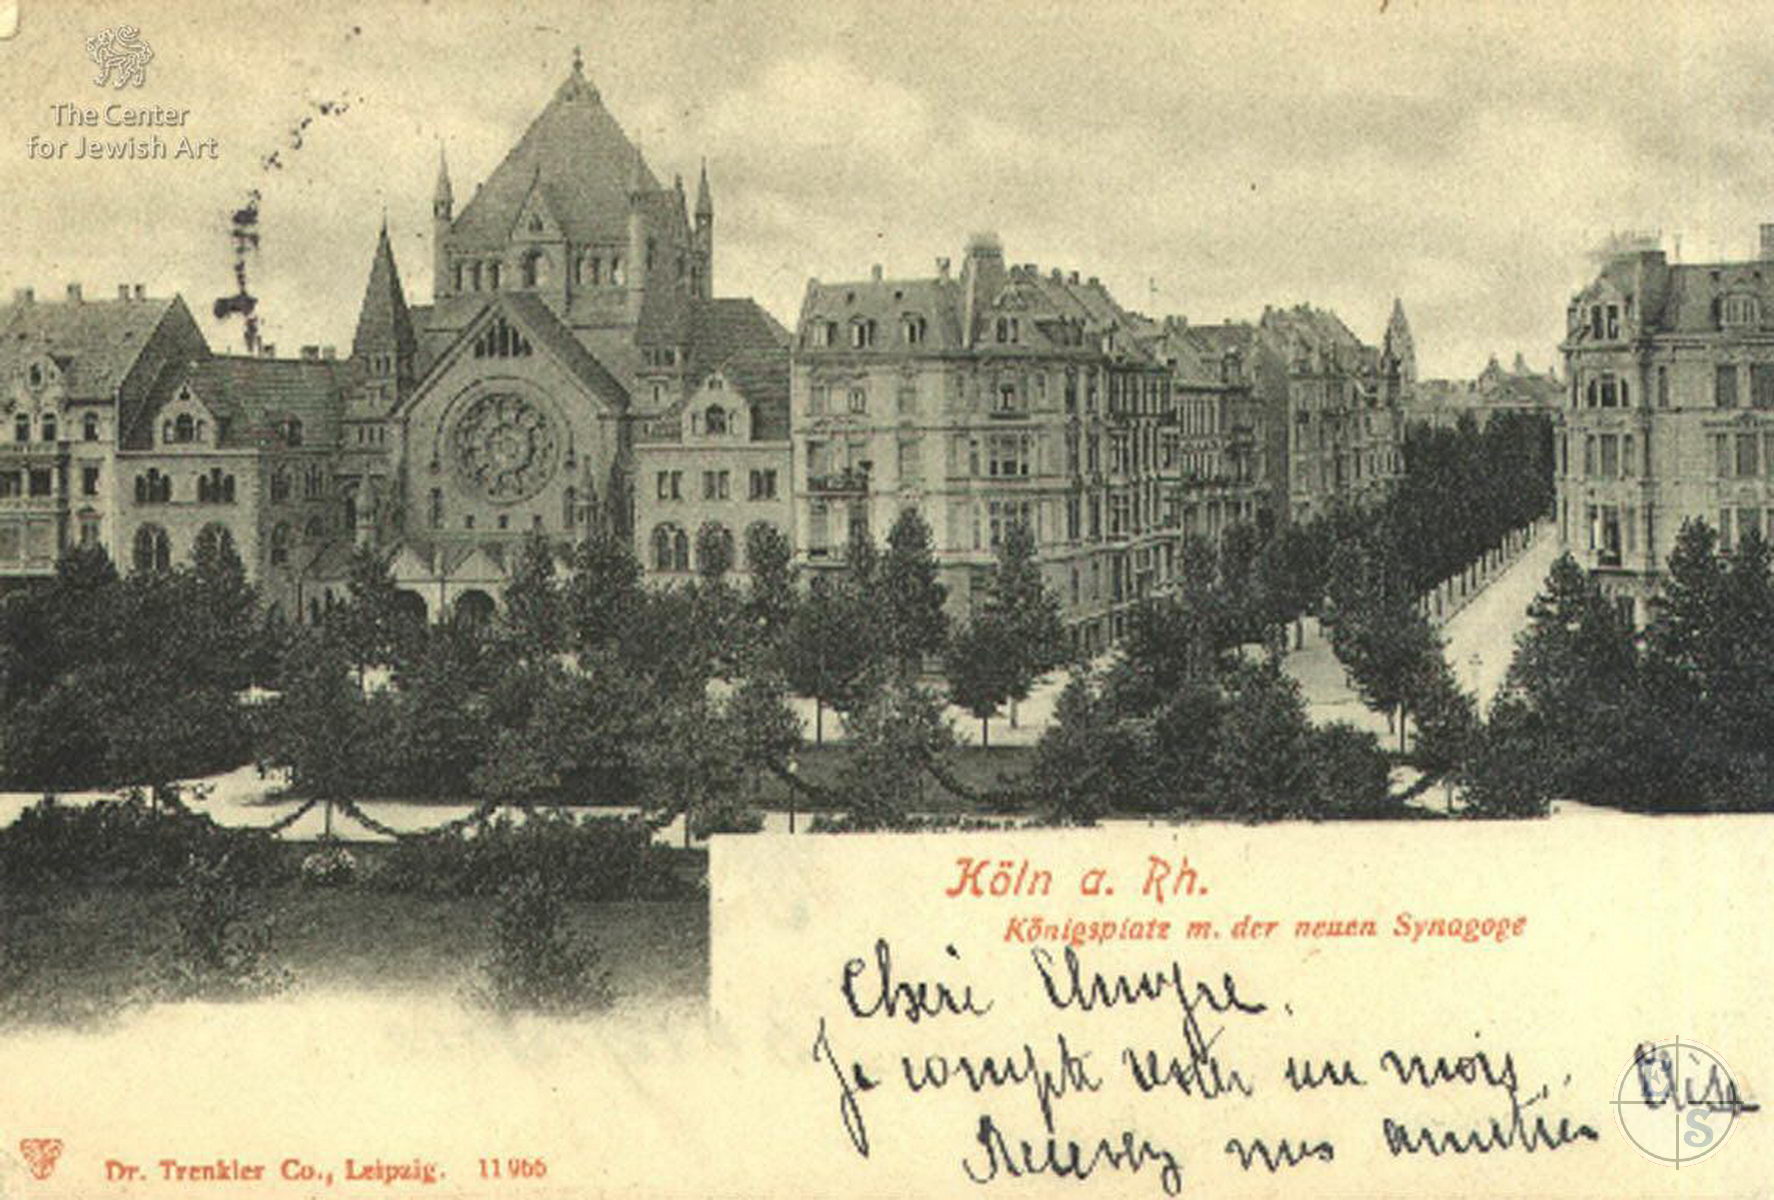 The Center
for Jewish Art
Köln a. Rh.
Königsplatz m. der neuen Synagoge
Cheri
Je compte rester un mois.
Elise
Recevez mes amitiés
Dr. Trenkler Co., Leipzig. 11966